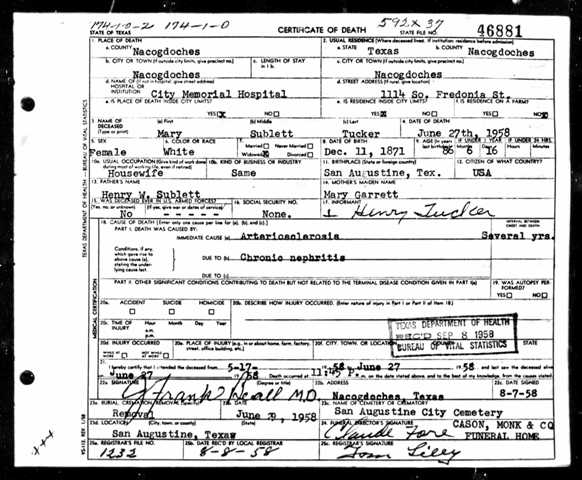 174-10-2 174-1-0 592X 37
CERTIFICATE OF DEATH STATE FILE NO. 46881
1. PLACE OF DEATH 2. USUAL RESIDENCE (Where deceased lived. If institution: residence before admission)
a. COUNTY Nacogdoches a. STATE Texas b. COUNTY Nacogdoches
b. CITY OR TOWN (If outside city limits, give precinct no.) c. LENGTH OF STAY in 1 b c. CITY OR TOWN (If outside city limits, give precinct no.)
Nacogdoches Nacogdoches
d. NAME OF (If not in hospital, give street address) HOSPITAL OR INSTITUTION City Memorial Hospital d. STREET ADDRESS (If rural, give location) 1114 So. Fredonia St.
e. IS PLACE OF DEATH INSIDE CITY LIMITS? YES NO e. IS RESIDENCE INSIDE CITY LIMITS? YES NO f. IS RESIDENCE ON A FARM? YES NO
3. NAME OF DECEASED (Type or print) (a) First (b) Middle (c) Last 4. DATE OF DEATH
Mary Sublett Tucker June 27th, 1958
5. SEX 6. COLOR OR RACE 7. Married Never Married Widowed Divorced 8. DATE OF BIRTH 9. AGE (In years last birthday) IF UNDER 1 YEAR Months Days IF UNDER 24 HRS. Hours Minutes
Female White Dec. 11, 1871 86 6 16
10a. USUAL OCCUPATION (Give kind of work done during most of working life, even if retired) 10b. KIND OF BUSINESS OR INDUSTRY 11. BIRTHPLACE (State or foreign country) 12. CITIZEN OF WHAT COUNTRY?
Housewife Same San Augustine, Tex. USA
13. FATHER'S NAME 14. MOTHER'S MAIDEN NAME
Henry W. Sublett Mary Garrett
15. WAS DECEASED EVER IN U.S. ARMED FORCES? (Yes, no or unknown) (If yes, give war or dates of service) 16. SOCIAL SECURITY NO. 17. INFORMANT
No - - - - - None. Henry Tucker
18. CAUSE OF DEATH (Enter only one cause per line for (a), (b), and (c).) INTERVAL BETWEEN ONSET AND DEATH
PART I. DEATH WAS CAUSED BY:
IMMEDIATE CAUSE (a) Arteriosclerosis Several yrs.
Conditions, if any, which gave rise to above cause (a), stating the underlying cause last.
DUE TO (b) Chronic nephritis
DUE TO (c)
PART II. OTHER SIGNIFICANT CONDITIONS CONTRIBUTING TO DEATH BUT NOT RELATED TO THE TERMINAL DISEASE CONDITION GIVEN IN PART I(a) 19. WAS AUTOPSY PERFORMED? YES NO
20a. ACCIDENT SUICIDE HOMICIDE 20b. DESCRIBE HOW INJURY OCCURRED. (Enter nature of injury in Part I or Part II of item 18.)
20c. TIME OF INJURY Hour Month Day Year a.m. p.m.
TEXAS DEPARTMENT OF HEALTH
REC'D SEP 8 1958
BUREAU OF VITAL STATISTICS
20d. INJURY OCCURRED WHILE AT WORK NOT WHILE AT WORK 20e. PLACE OF INJURY (e.g. in or about home, farm, factory, street, office building, etc.) 20f. CITY, TOWN, OR LOCATION COUNTY STATE
21. I hereby certify that I attended the deceased from 5-17- 1958 June 27 1958 and last saw the deceased alive
June 27 1958 Death occurred at 11:45 P.m. on the date stated above, and to the best of my knowledge, from the causes stated.
22a. SIGNATURE (Degree or title) 22b. ADDRESS 22c. DATE SIGNED
Frank Beall M.D. Nacogdoches, Texas 8-7-58
23a. BURIAL, CREMATION, REMOVAL (Specify) 23b. DATE 23c. NAME OF CEMETERY OR CREMATORY
Removal 1958 San Augustine City Cemetery
23d. LOCATION (City, town, or county) (State) 24. FUNERAL DIRECTOR'S SIGNATURE
San Augustine, Texas Claude Fore CASON, MONK & CO FUNERAL HOME
25a. REGISTRAR'S FILE NO. 25b. DATE REC'D BY LOCAL REGISTRAR 25c. REGISTRAR'S SIGNATURE
1232 8-8-58 Tom Lilly
TEXAS DEPARTMENT OF HEALTH - BUREAU OF VITAL STATISTICS
MEDICAL CERTIFICATION